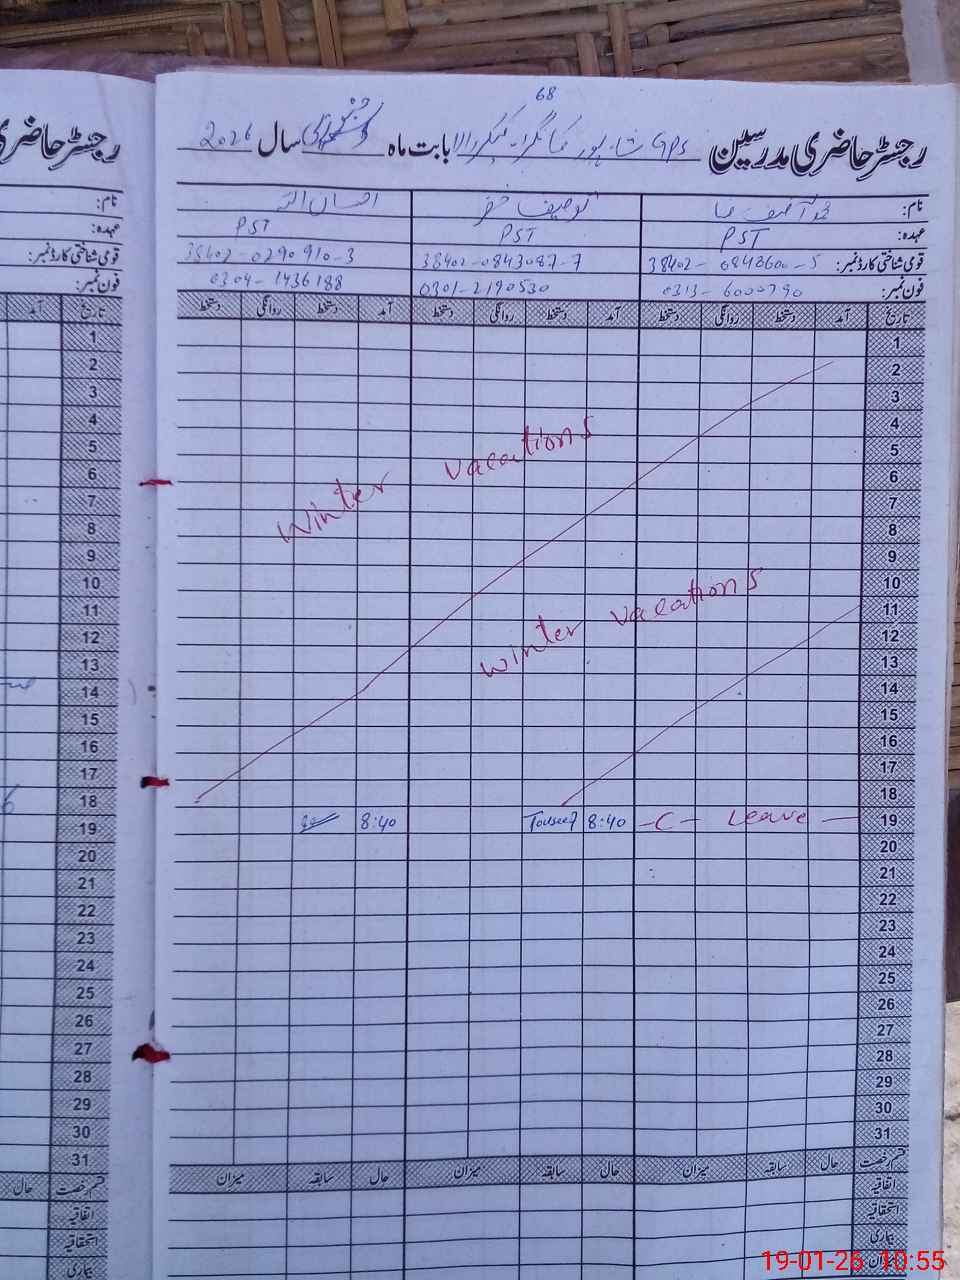 68
رجسٹر حاضری مدرسین GPS شاہ پور بابت ماہ جنوری سال 2026
نام: محمد آصف احسان اللہ
عہدہ: PST PST PST
قومی شناختی کارڈ نمبر: 38402-0843087-7 38402-0290910-3
فون نمبر: 0313-6000790 0301-2190530 0304-1436188
تاریخ آمد دستخط روانگی دستخط آمد دستخط روانگی دستخط آمد دستخط روانگی دستخط
1
2
3
4
5
6
7
8
9
10
11
12
13
14
15
16
17
18
19 -C- Leave 8:40 Touseef 8:40
20
21
22
23
24
25
26
27
28
29
30
31
Winter vacations
Winter vacations
قسم رخصت حال سابقہ میزان حال سابقہ میزان حال سابقہ میزان
اتفاقیہ
استحقاقیہ
بیماری
میزان
رجسٹر حاضری
نام:
عہدہ:
قومی شناختی کارڈ نمبر:
فون نمبر:
تاریخ آمد
1
2
3
4
5
6
7
8
9
10
11
12
13
14
15
16
17
18
19
20
21
22
23
24
25
26
27
28
29
30
31
قسم رخصت حال
اتفاقیہ
استحقاقیہ
بیماری
19-01-26 10:55